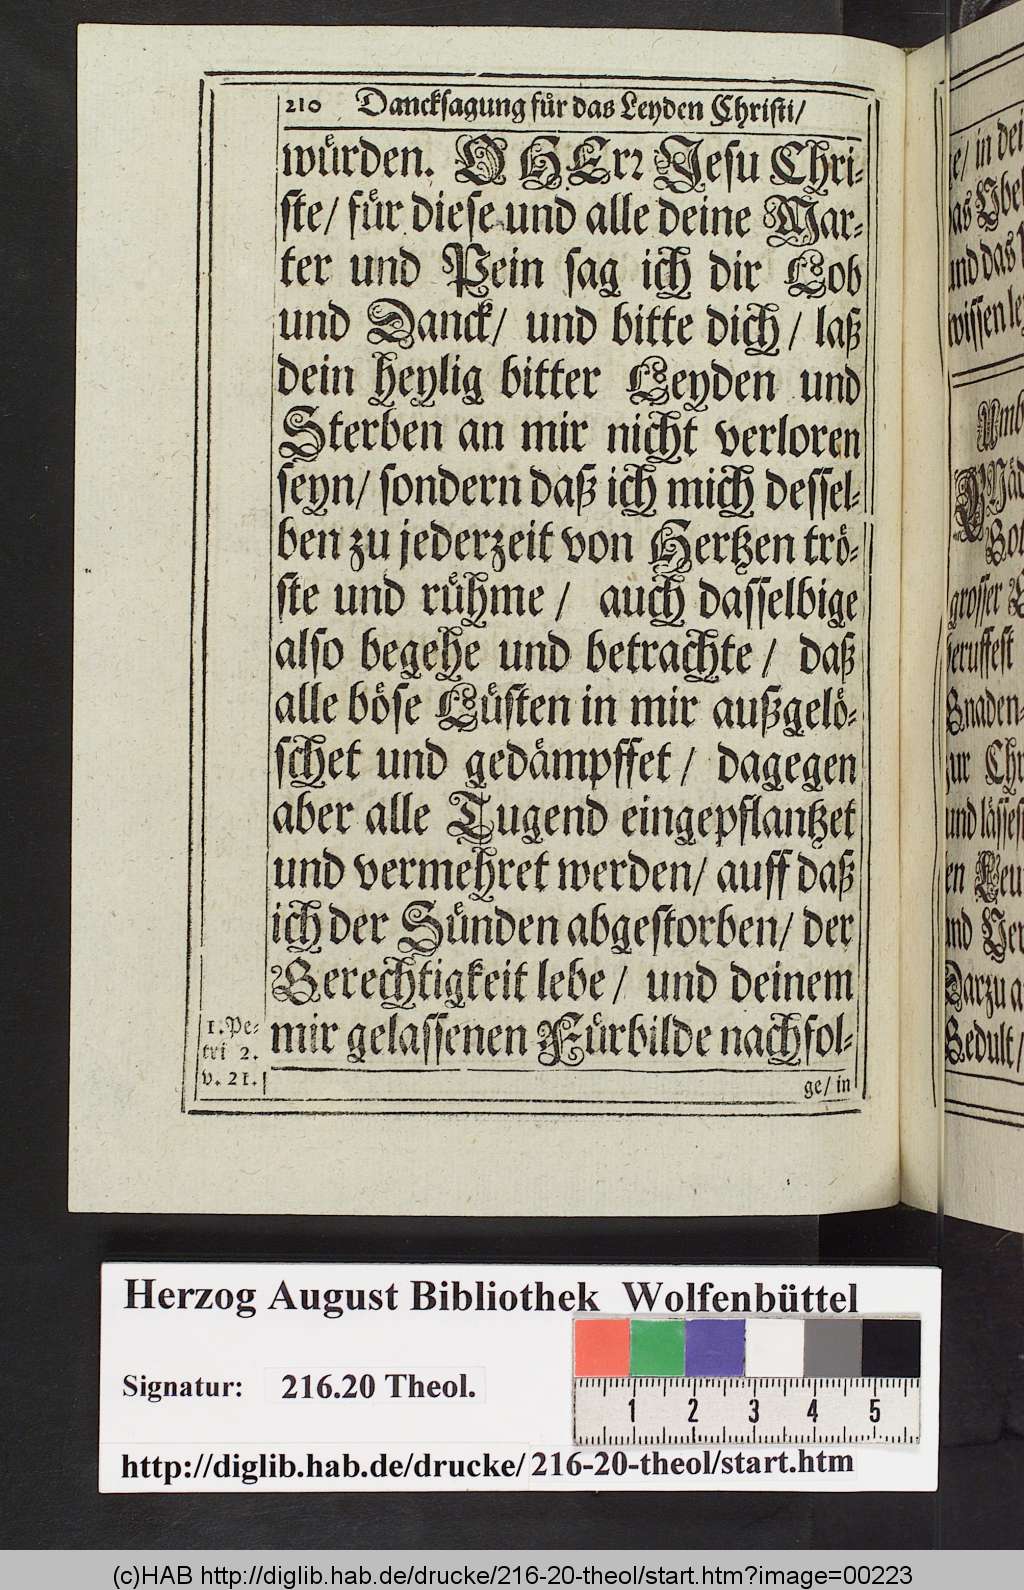 210 Dancksagung für das Leyden Christi/
würden. O HErr Jesu Chri-
ste/ für diese und alle deine Mar-
ter und Pein sag ich dir Lob
und Danck/ und bitte dich/ laß
dein heylig bitter Leyden und
Sterben an mir nicht verloren
seyn/ sondern daß ich mich dessel-
ben zu jederzeit von Hertzen trö-
ste und rühme/ auch dasselbige
also begehe und betrachte/ daß
alle böse Lüsten in mir außgelö-
schet und gedämpffet/ dagegen
aber alle Tugend eingepflantzet
und vermehret werden/ auff daß
ich der Sünden abgestorben/ der
Gerechtigkeit lebe/ und deinem
mir gelassenen Fürbilde nachfol-
1. Pe-
tri 2.
v. 21.
ge/ in
in dei
und das
wissen
grosser
beruffest
Gnaden-
zur Chr
und lässest
und Ver
Darzu a
Gedult/
Herzog August Bibliothek Wolfenbüttel
Signatur: 216.20 Theol.
1 2 3 4 5
http://diglib.hab.de/drucke/216-20-theol/start.htm
(c)HAB http://diglib.hab.de/drucke/216-20-theol/start.htm?image=00223